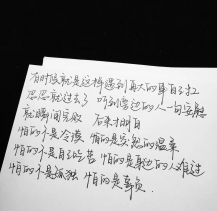 有时候就是这样遇到再大的事自己扛
忍忍就过去了 听到旁边的人一句安慰
就瞬间完败 后来才明白
怕的不是冷漠 怕的是突然的温柔
怕的不是自己吃苦 怕的是身边的人难过
怕的不是孤独 怕的是辜负